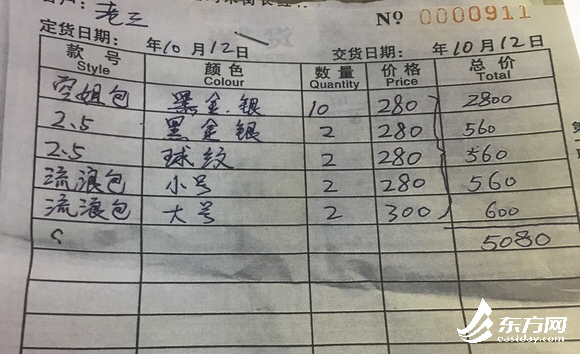 客户： 老三 No 0000911
定货日期： 年10月12日 交货日期： 年10月12日
款号 颜色 数量 价格 总价
Style Colour Quantity Price Total
空姐包 黑金.银 10 280 2800
2.5 黑金银 2 280 560
2.5 球纹 2 280 560
流浪包 小号 2 280 560
流浪包 大号 2 300 600
5080
东方网
eastday.com